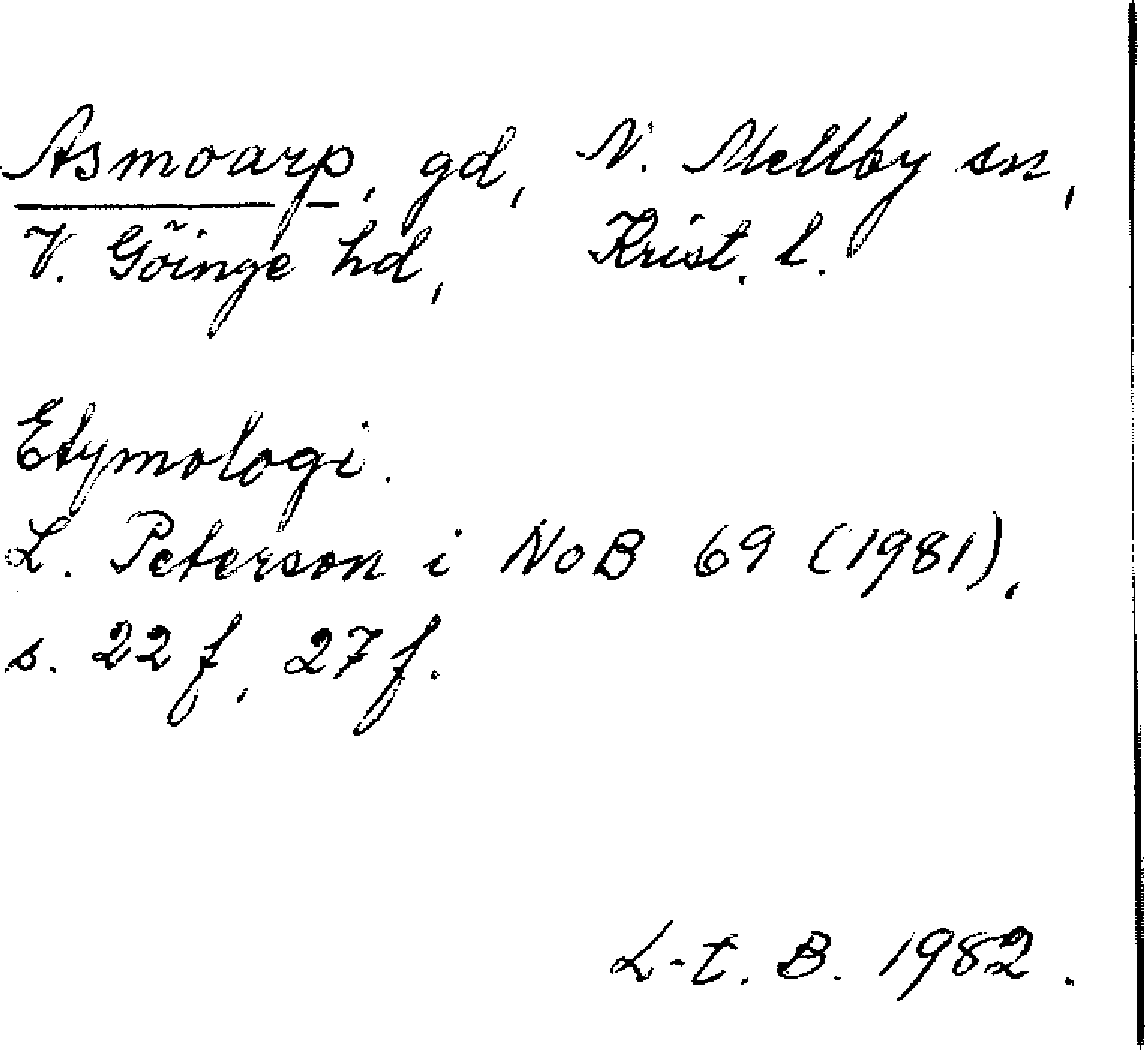 Asmoarp, gd, N. Mellby sn,
V. Göinge hd, Krist. l.
Etymologi.
L. Peterson i NoB 69 (1981),
s. 22 f, 27 f.
L-t. B. 1982.